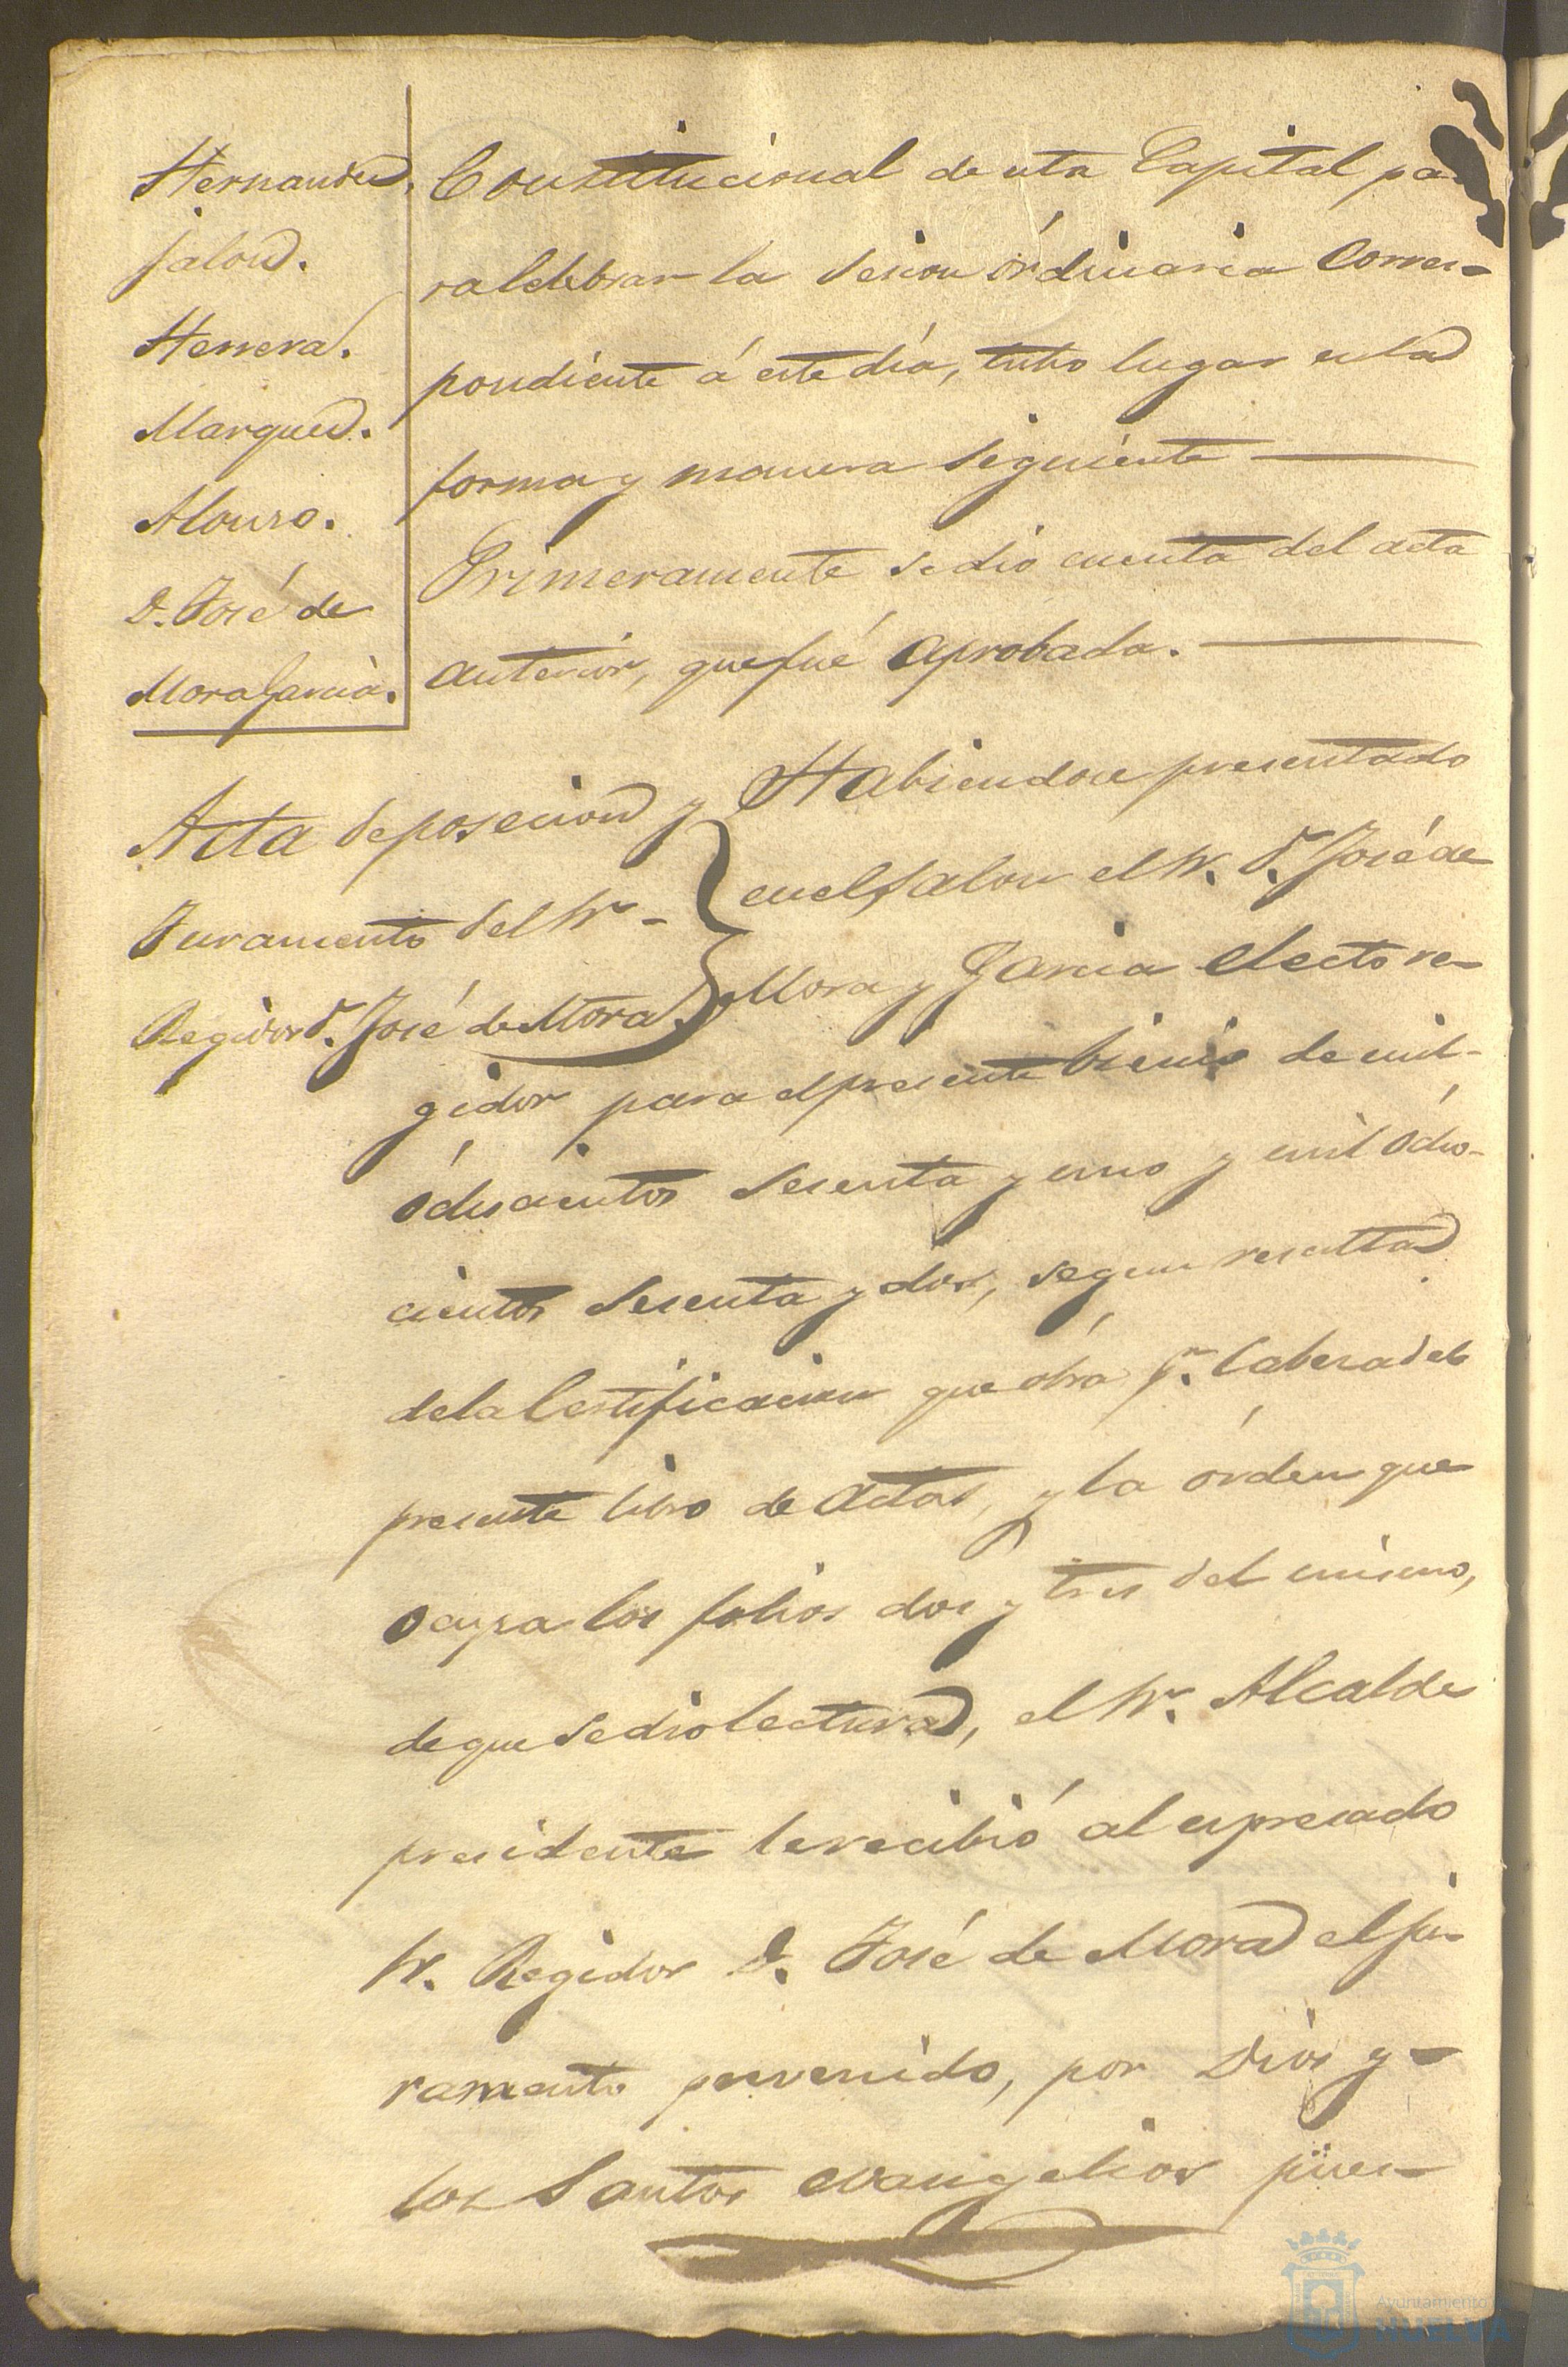 Hernandez.
Jalon.
Herrera.
Marquez.
Alonso.
D. José de
Mora Garcia.
Constitucional de esta Capital pa
ra celebrar la sesion órdinaria corres-
pondiente á este dia, tubo lugar en la
forma y manera siguiente
Primeramente se dio cuenta del acta
anterior, que fué aprobada.
Acta de posecion y
Juramento del Sr
Regidor Dn. José de Mora.
Habiendose presentado
en el salon el Sr. Dn. José de
Mora y Garcia electo re-
gidor para el presente bienio de mil-
óchocientos sesenta y uno y mil ócho-
cientos sesenta y dos, segun resulta
de la Certificacion que obra pr. Cabesa del
presente libro de actas, y la órden que
ocupa los folios dos y tres del mismo,
de que se dio lectura, el Sr. Alcalde
presidente le recibió al espresado
Sr. Regidor D. José de Mora el ju-
ramento prevenido, por Dios y-
los Santos evangelios pues-
Ayuntamiento de
HUELVA